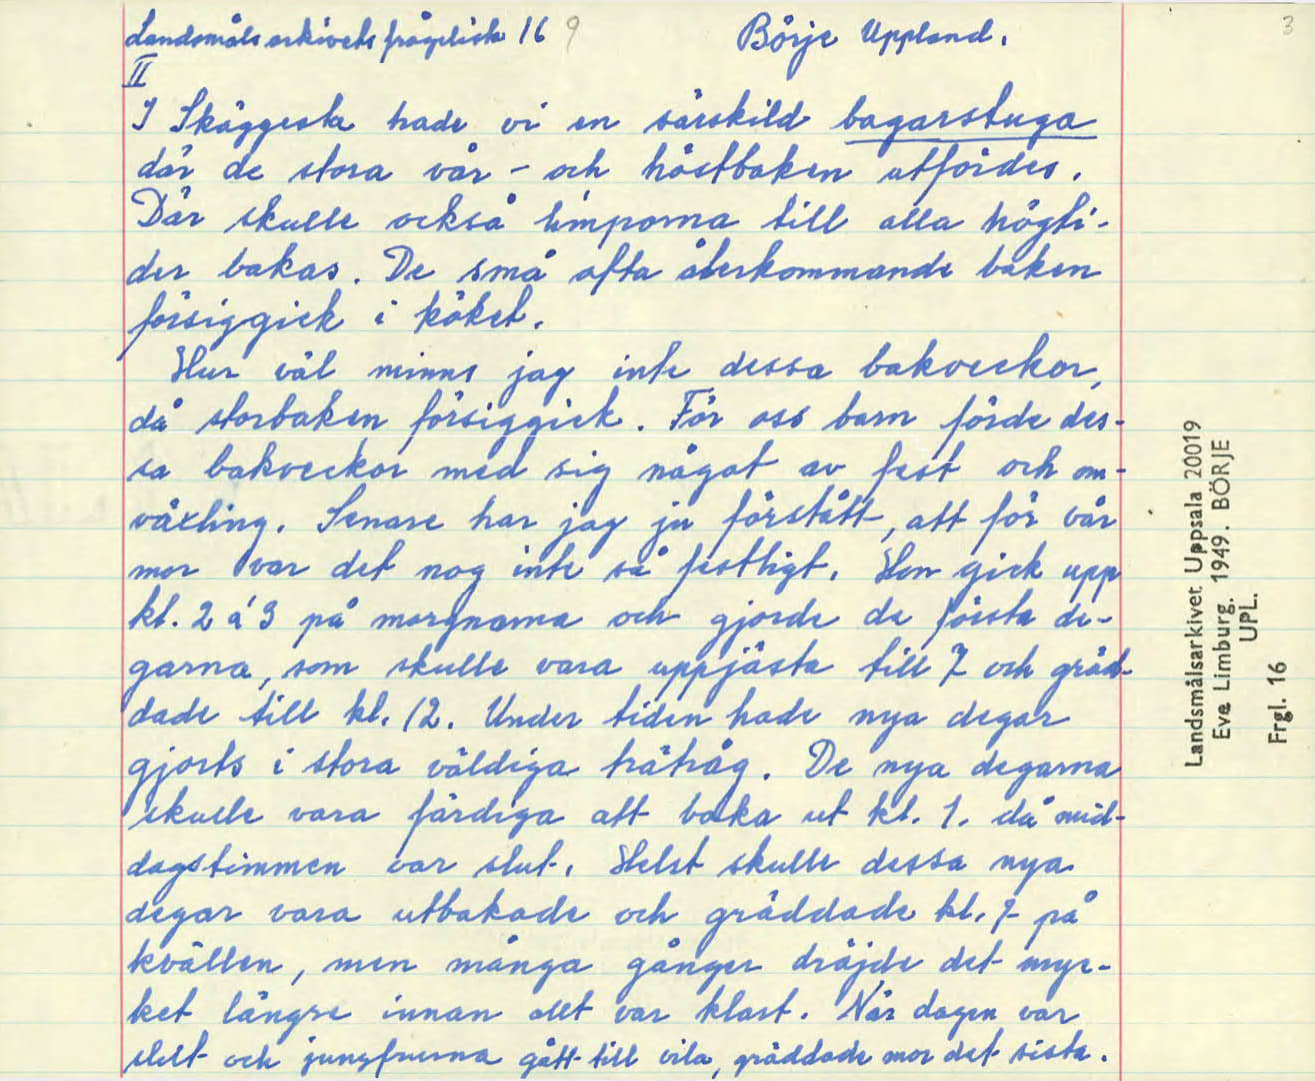 Landsmålsarkivets frågelista 16 9 Börje Uppland. 3
II
I Skäggesta hade vi en särskild bagarstuga
där de stora vår- och höstbaken utfördes.
Där skulle också limporna till alla högti-
der bakas. De små ofta återkommande baken
försiggick i köket.
Hur väl minns jag inte dessa bakveckor,
då storbaken försiggick. För oss barn förde des-
sa bakveckor med sig något av fest och om-
växling. Senare har jag ju förstått, att för vår
mor var det nog inte så festligt. Hon gick upp
kl. 2 á 3 på morgnarna och gjorde de första de-
garna, som skulle vara uppjästa till 7 och gräd-
dade till kl. 12. Under tiden hade nya degar
gjorts i stora väldiga trätråg. De nya degarna
skulle vara färdiga att baka ut kl. 1. då mid-
dagstimmen var slut. Helst skulle dessa nya
degar vara utbakade och gräddade kl. 7 på
kvällen, men många gånger dröjde det myc-
ket längre innan allt var klart. När dagen var
slut och jungfrurna gått till vila, gräddade mor det sista.
Landsmålsarkivet Uppsala 20019
Eva Limburg. 1949. BÖRJE
UPL.
Frgl. 16